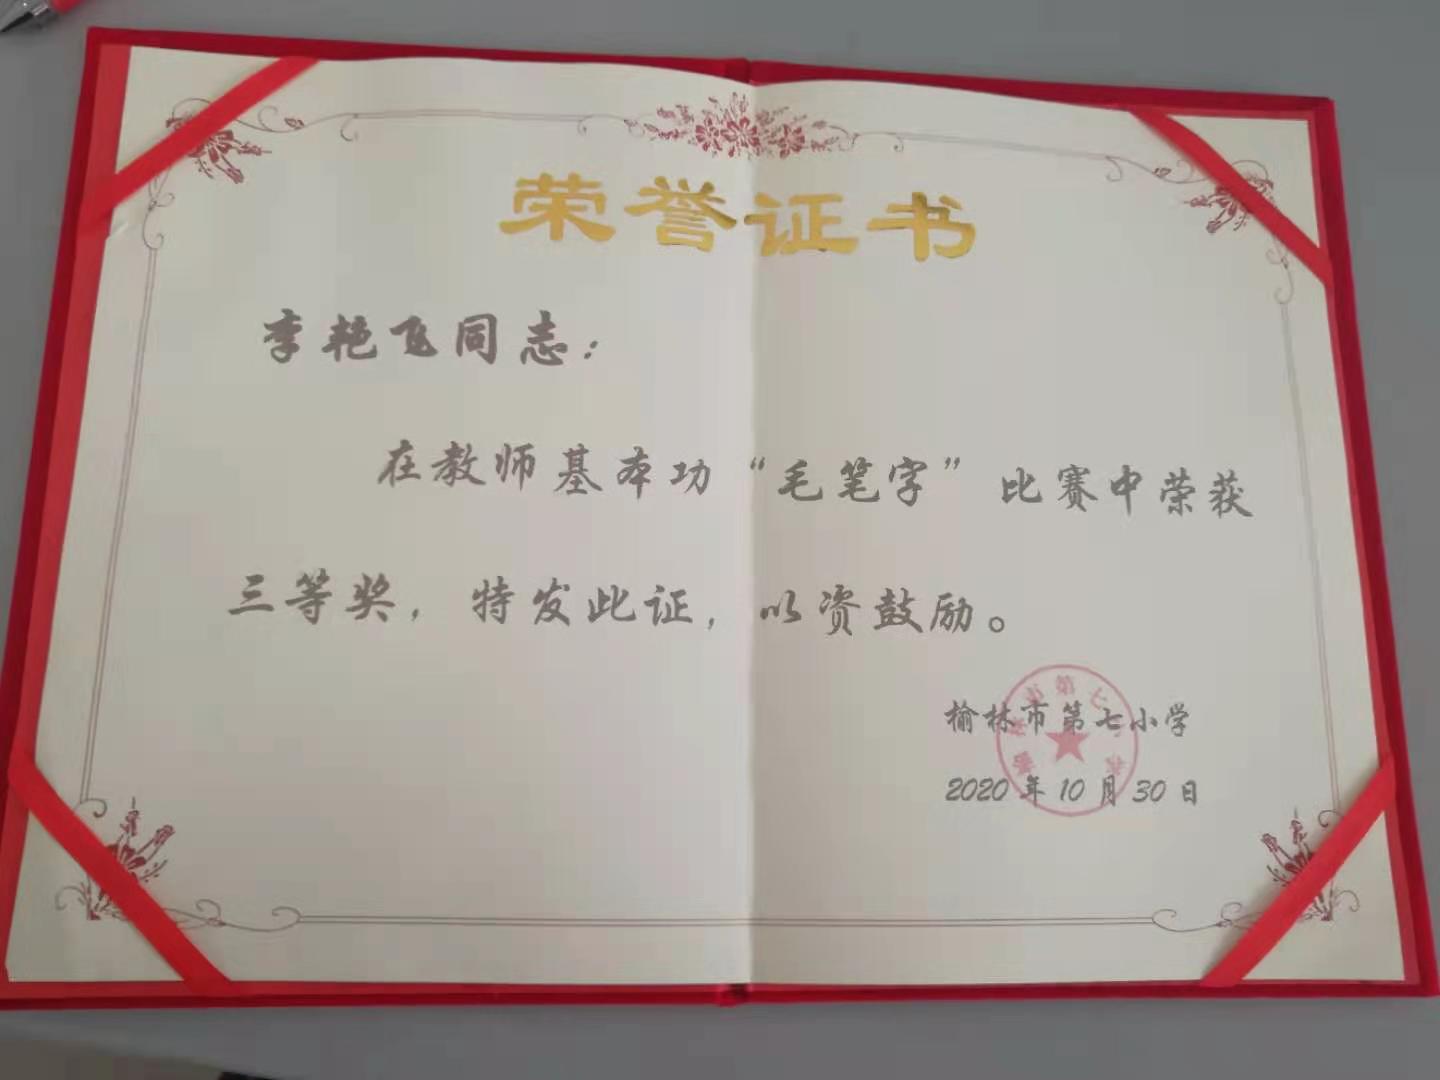 荣誉证书
李艳飞同志：
在教师基本功“毛笔字”比赛中荣获
三等奖，特发此证，以资鼓励。
榆林市第七小学
2020年10月30日